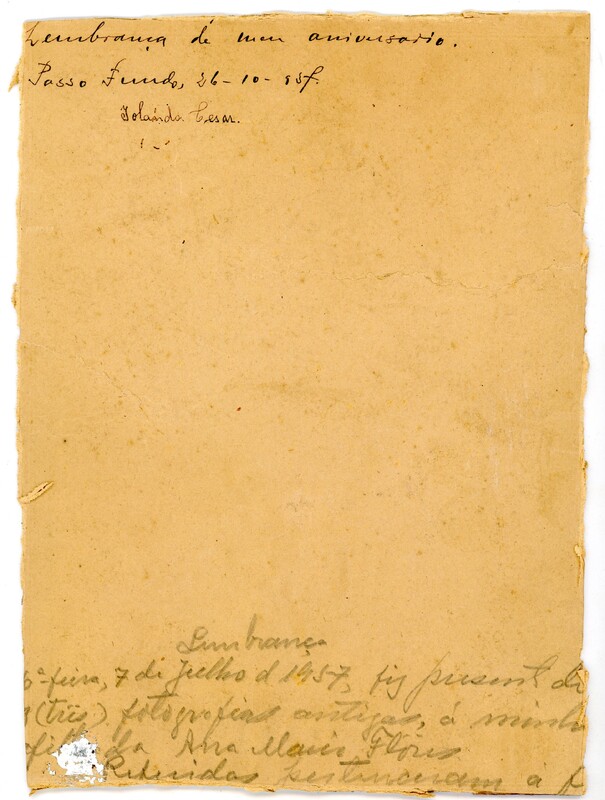 Lembrança de meu aniversario.
Passo Fundo, 26-10-957.
Iolánda Cesar.
Lembrança
6ª-feira, 7 de Julho d 1957, fiz present de
(três) fotografias antigas, á minha
afilhada Anna Maria Flôres
Referidas pertenceram á f